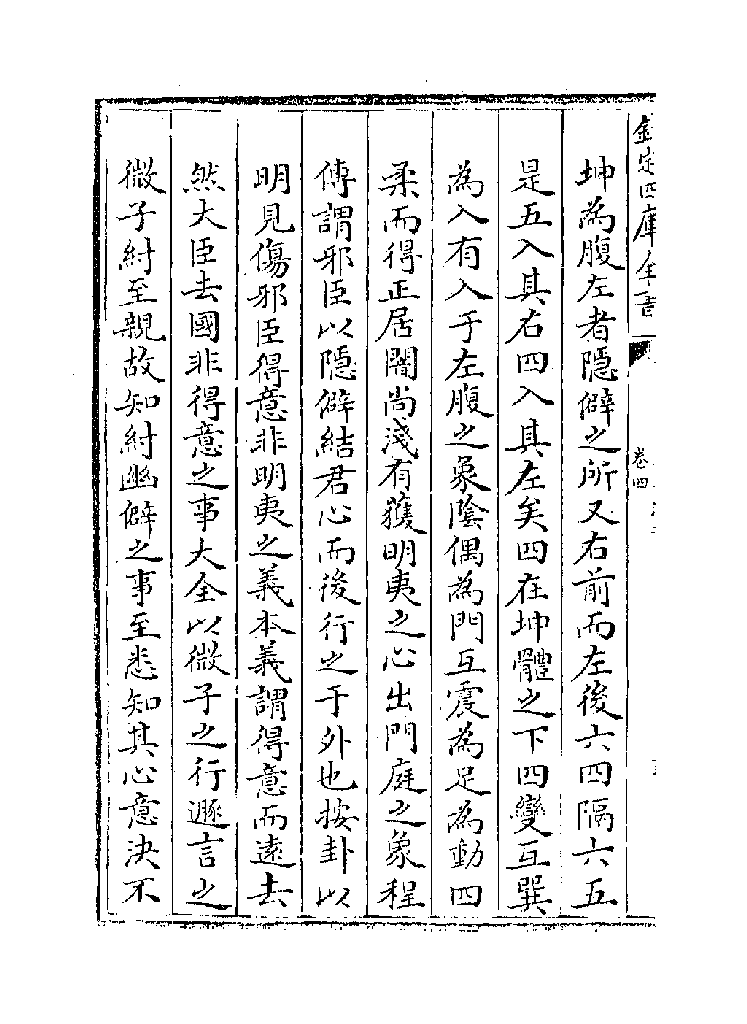 欽定四庫全書
卷四
坤為腹左者隱僻之所又右前而左後六四隔六五
是五入其右四入其左矣四在坤體之下四變互巽
為入有入于左腹之象陰偶為門互震為足為動四
柔而得正居闇尚淺有獲明夷之心出門庭之象程
傳謂邪臣以隱僻結君心而後行之于外也按卦以
明見傷邪臣得意非明夷之義本義謂得意而遠去
然大臣去國非得意之事大全以微子之行遯言之
微子紂至親故知紂幽僻之事至悉知其心意決不